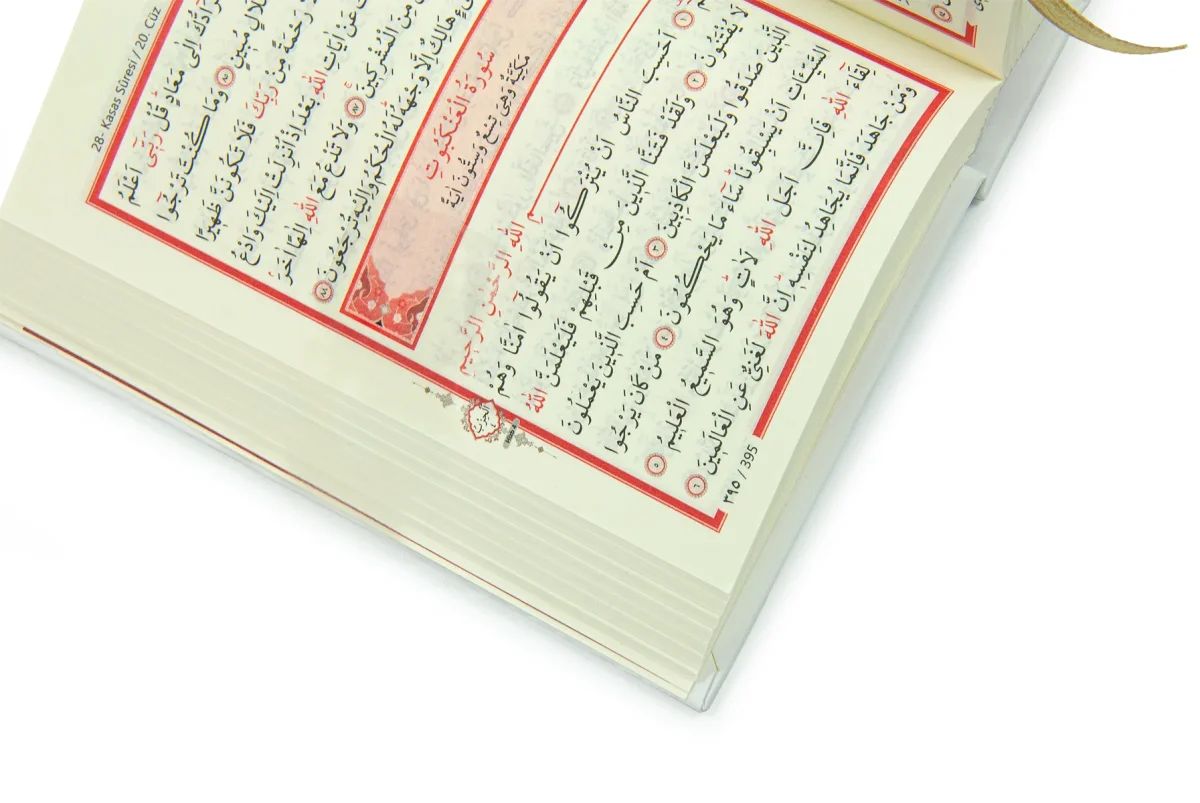 28- Kasas Sûresi / 20. Cüz
رَادُّكَ اِلٰى مَعَادٍ قُلْ رَبّ۪ى اَعْلَمُ
مُب۪ينٍ ﴿٨٥﴾ وَمَا كُنْتَ تَرْجُوا
رَحْمَةً مِنْ رَبِّكَ فَلَا تَكُونَنَّ ظَه۪يرًا
عَنْ اٰيَاتِ اللّٰهِ بَعْدَ اِذْ اُنْزِلَتْ اِلَيْكَ وَادْعُ
مِنَ الْمُشْرِك۪ينَ ﴿٨٧﴾ وَلَا تَدْعُ مَعَ اللّٰهِ اِلٰهًا اٰخَرَ
هَالِكٌ اِلَّا وَجْهَهُ لَهُ الْحُكْمُ وَاِلَيْهِ تُرْجَعُونَ ﴿٨٨﴾
سُورَةُ الْعَنْكَبُوتِ
مَكِّيَّةٌ وَهِىَ تِسْعٌ وَسِتُّونَ اٰيَةً
اللّٰهِ الرَّحْمٰنِ الرَّح۪يمِ
﴿١﴾ اَحَسِبَ النَّاسُ اَنْ يُتْرَكُٓوا اَنْ يَقُولُٓوا اٰمَنَّا وَهُمْ
لَا يُفْتَنُونَ ﴿٢﴾ وَلَقَدْ فَتَنَّا الَّذ۪ينَ مِنْ قَبْلِهِمْ فَلَيَعْلَمَنَّ اللّٰهُ
الَّذ۪ينَ صَدَقُوا وَلَيَعْلَمَنَّ الْكَاذِب۪ينَ ﴿٣﴾ اَمْ حَسِبَ الَّذ۪ينَ يَعْمَلُونَ
السَّيِّـَٔاتِ اَنْ يَسْبِقُونَا سَٓاءَ مَا يَحْكُمُونَ ﴿٤﴾ مَنْ كَانَ يَرْجُوا
لِقَٓاءَ اللّٰهِ فَاِنَّ اَجَلَ اللّٰهِ لَاٰتٍ وَهُوَ السَّم۪يعُ الْعَل۪يمُ ﴿٥﴾
وَمَنْ جَاهَدَ فَاِنَّمَا يُجَاهِدُ لِنَفْسِه۪ اِنَّ اللّٰهَ لَغَنِىٌّ عَنِ الْعَالَم۪ينَ ﴿٦﴾
٣٩٥ / 395